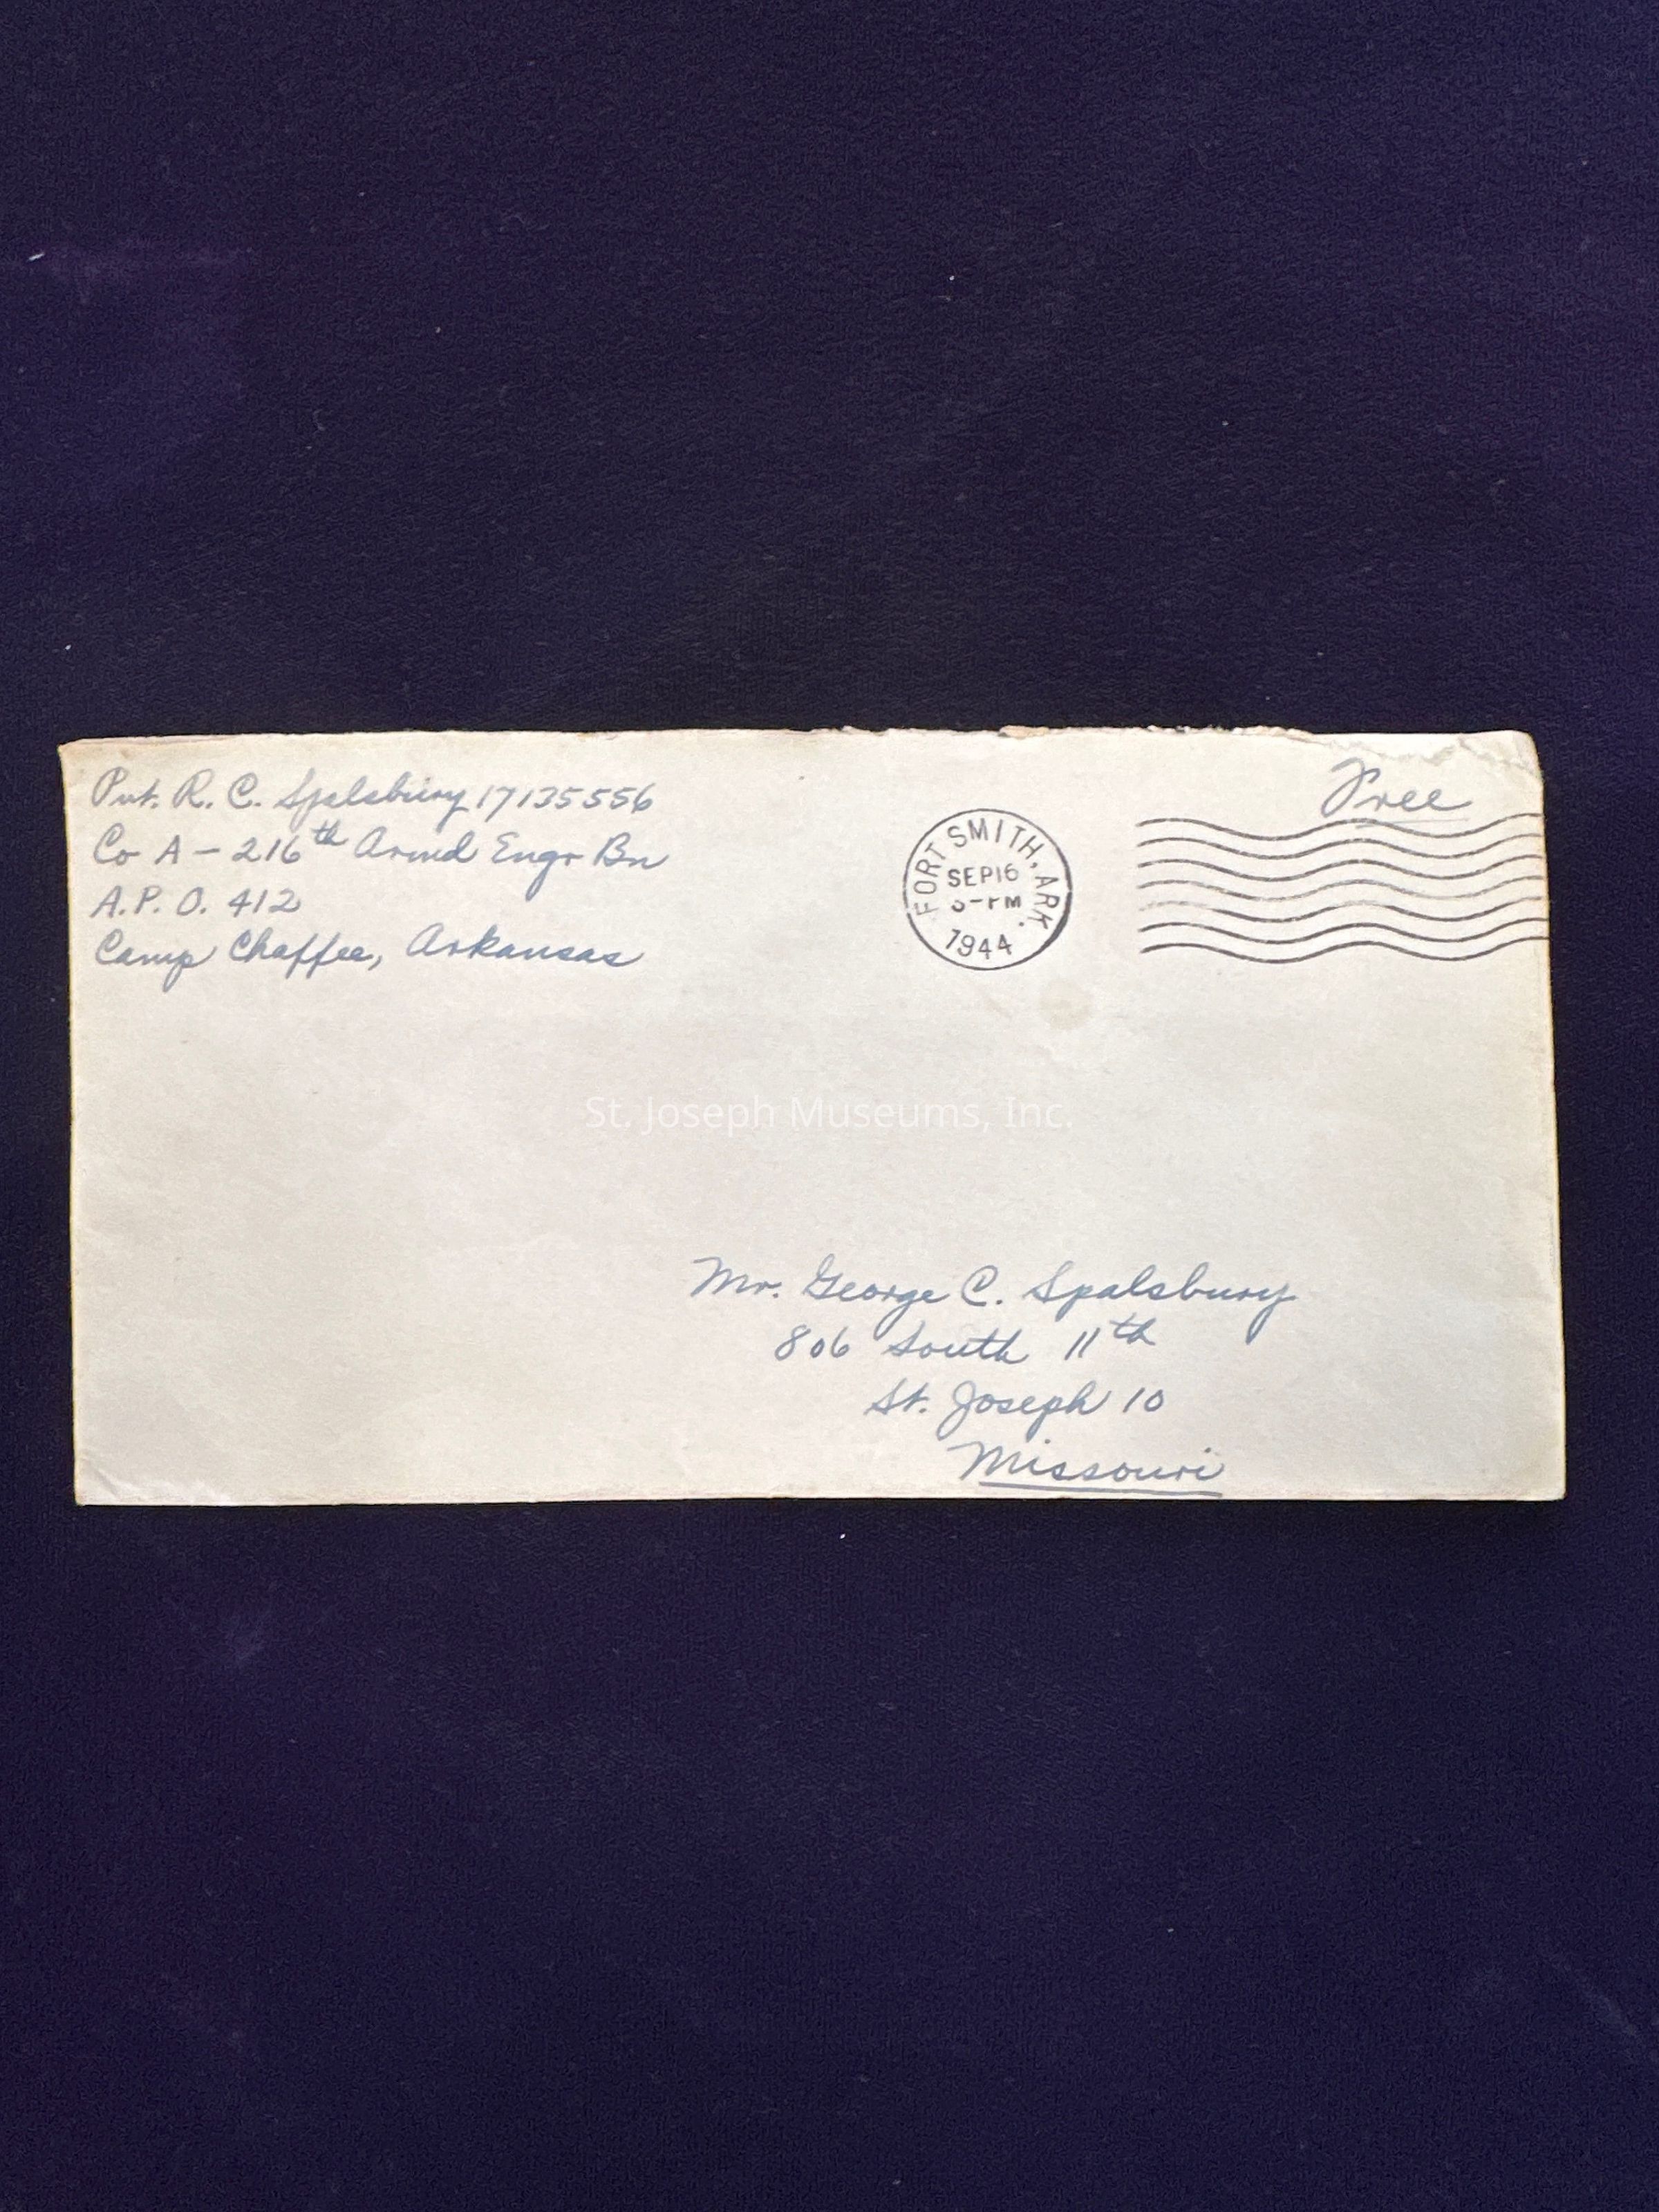 Pvt. R. C. Spalsbury 17135556
Co A - 216th Armd Engr Bn
A.P.O. 412
Camp Chaffee, Arkansas
FORT SMITH, ARK.
SEP 16
PM
1944
Free
St. Joseph Museums, Inc.
Mr. George C. Spalsbury
806 South 11th
St. Joseph 10
Missouri